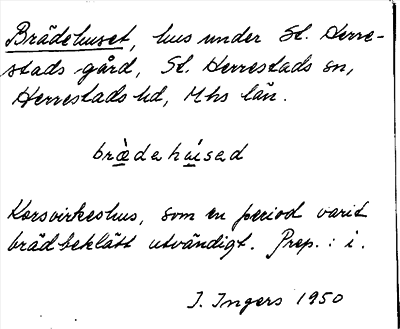 Brädehuset, hus under St. Herre-
stads gård, St. Herrestads sn,
Herrestads hd, Mhs län.
brädehúsed
Korsvirkeshus, som en period varit
brädbeklätt utvändigt. Prep.: i.
I. Ingers 1950